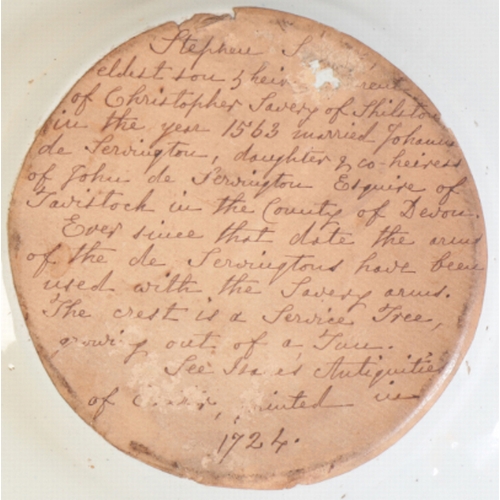 Stephen
eldest son & heir
of Christopher Savery of Shilstone
in the year 1563 married Johanna
de Servington, daughter & co-heiress
of John de Servington Esquire of
Tavistock in the County of Devon.
Ever since that date the arms
of the de Servingtons have been
used with the Savery arms.
The crest is a Service Tree,
growing out of a Tun.
See Antiquities
of printed in
1724.